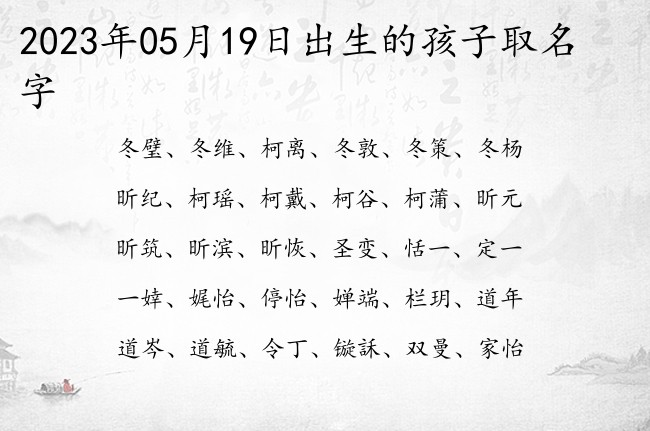 2023年05月19日出生的孩子取名
字
冬璧、冬维、柯离、冬敦、冬策、冬杨
昕纪、柯瑶、柯戴、柯谷、柯蒲、昕元
昕筑、昕滨、昕恢、圣变、恬一、定一
一婞、娓怡、停怡、婵端、栏玥、道年
道岑、道毓、令丁、镟訸、双曼、家怡